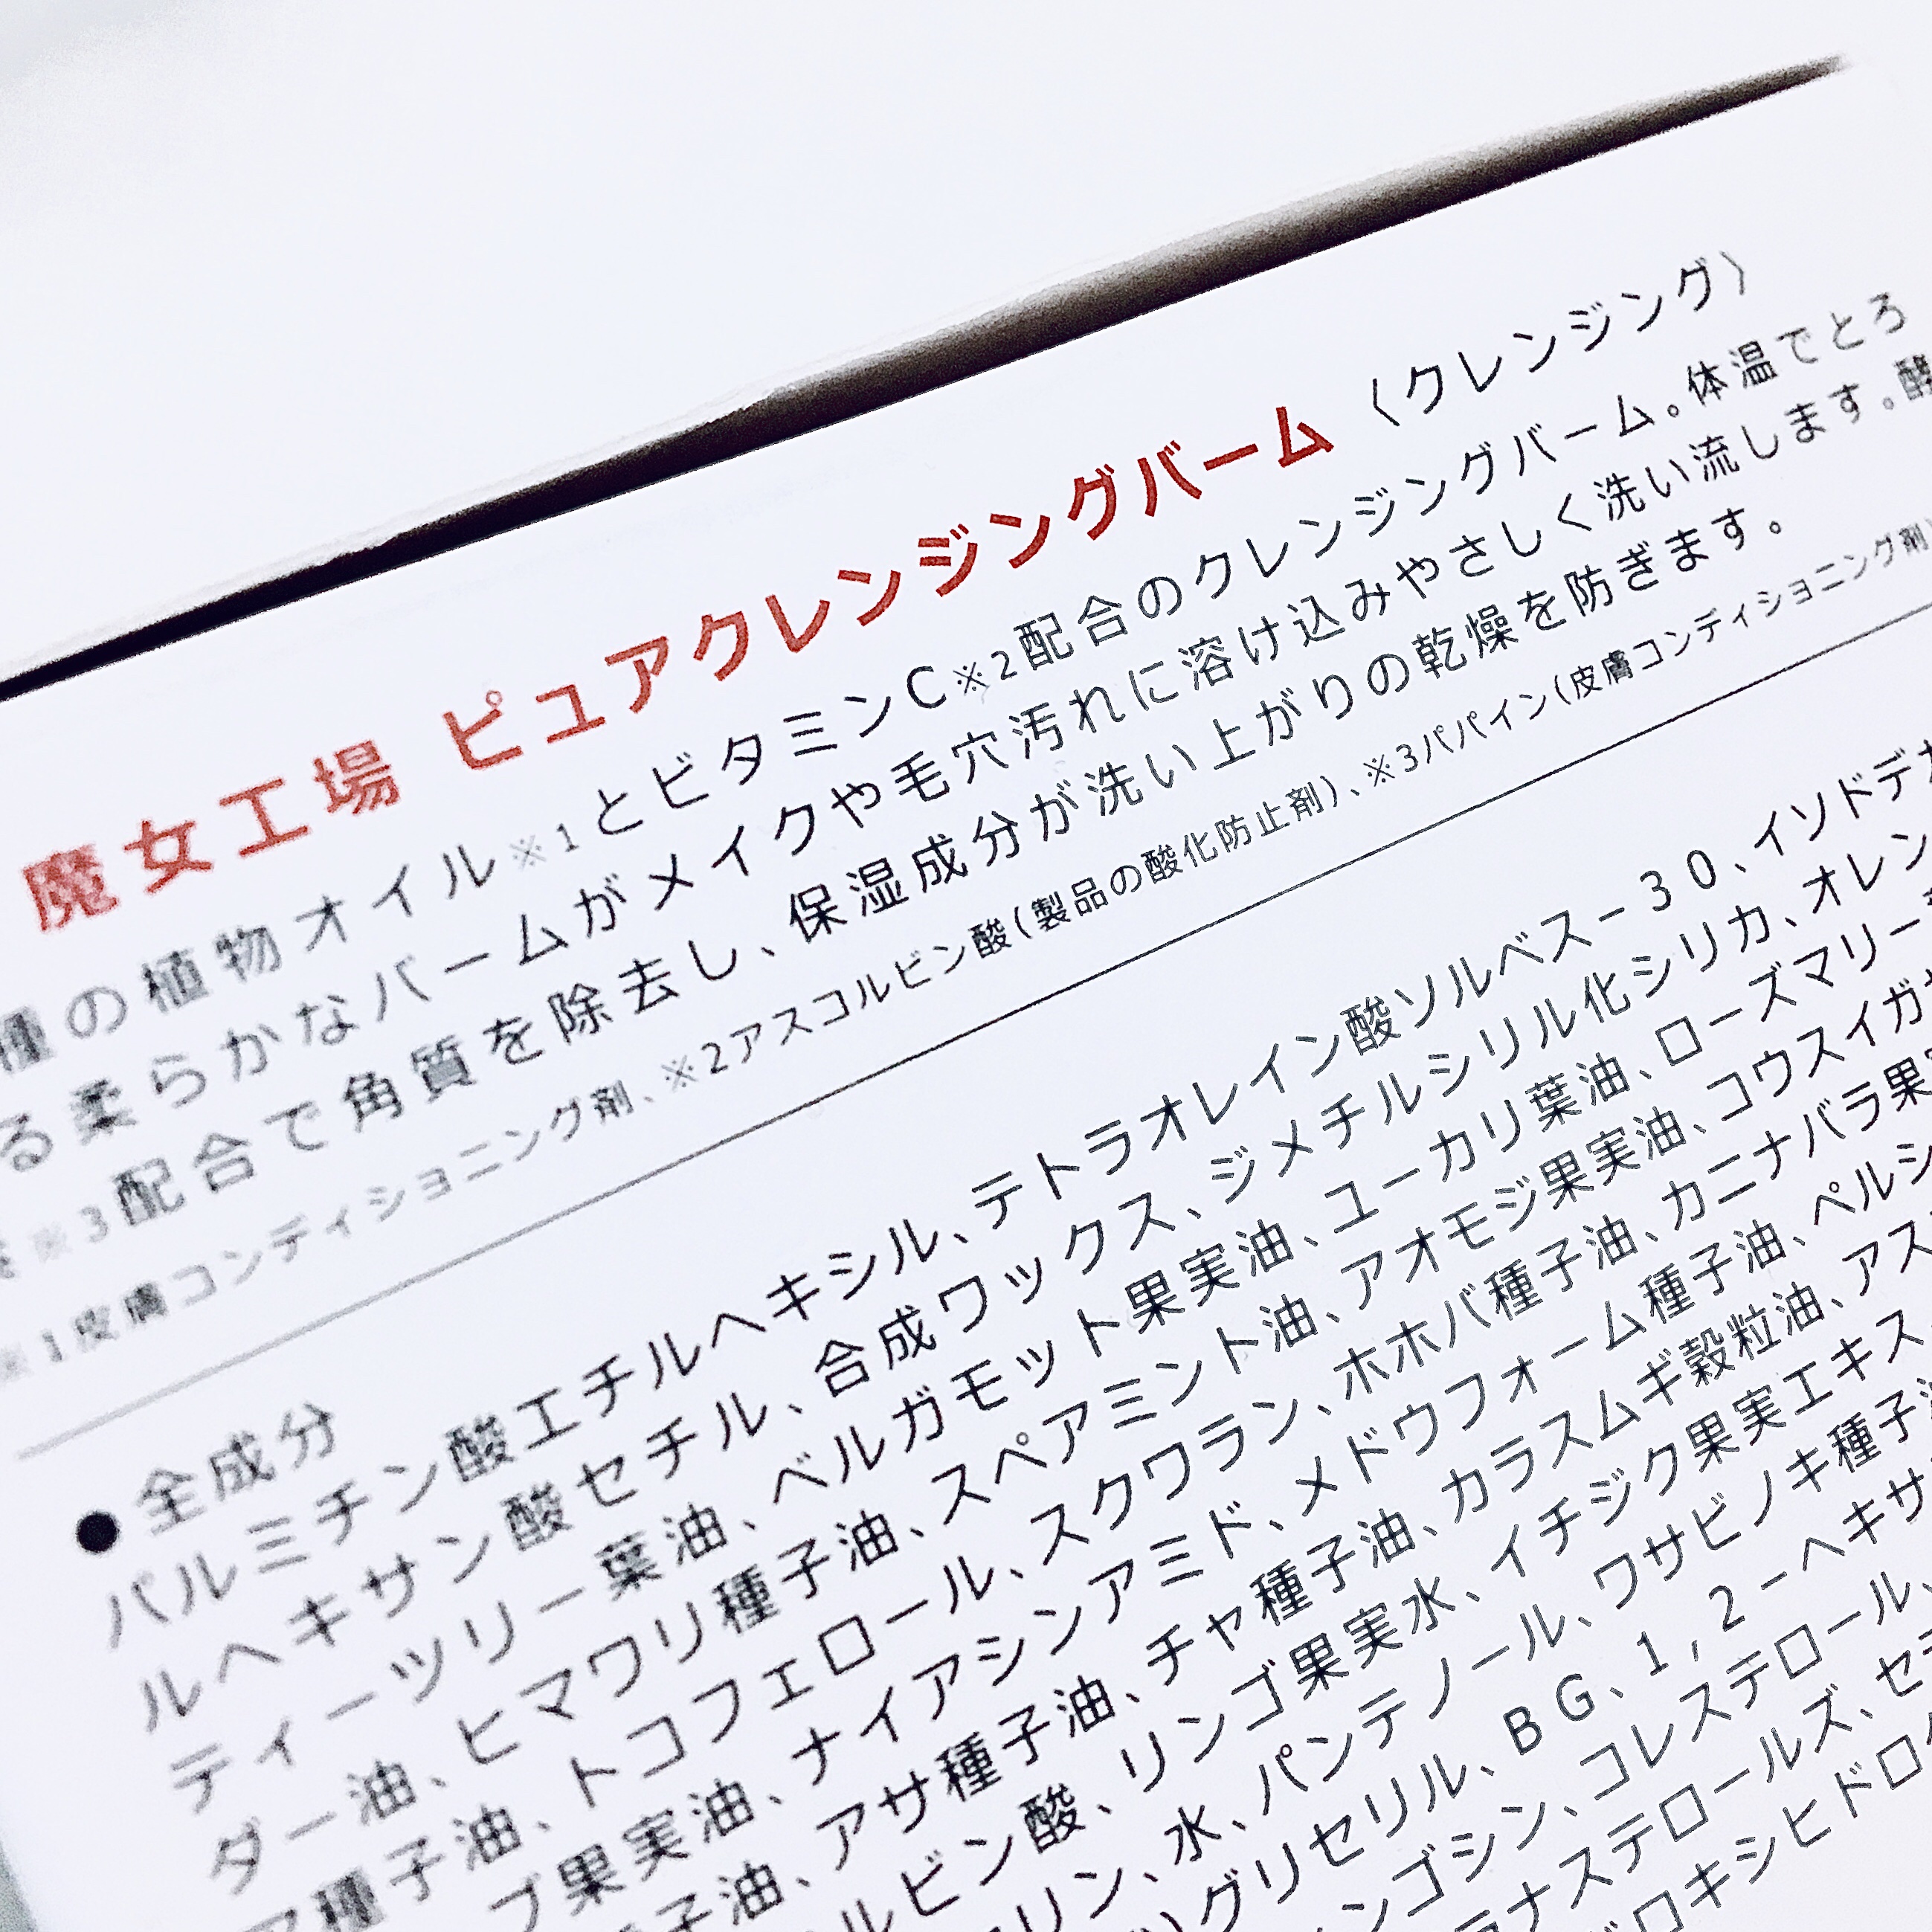 魔女工場 ピュアクレンジングバーム 〈クレンジング〉
種の植物オイル※1とビタミンC※2配合のクレンジングバーム。体温でとろ
る柔らかなバームがメイクや毛穴汚れに溶け込みやさしく洗い流します。酵
※3配合で角質を除去し、保湿成分が洗い上がりの乾燥を防ぎます。
※1皮膚コンディショニング剤、※2アスコルビン酸(製品の酸化防止剤)、※3パパイン(皮膚コンディショニング剤)
●全成分
パルミチン酸エチルヘキシル、テトラオレイン酸ソルベス－30、イソドデカ
ルヘキサン酸セチル、合成ワックス、ジメチルシリル化シリカ、オレン
ティーツリー葉油、ベルガモット果実油、ユーカリ葉油、ローズマリー葉
ダー油、ヒマワリ種子油、スペアミント油、アオモジ果実油、コウスイガヤ
ア種子油、トコフェロール、スクワラン、ホホバ種子油、カニナバラ果実
ブ果実油、ナイアシンアミド、メドウフォーム種子油、ペルシ
子油、アサ種子油、チャ種子油、カラスムギ穀粒油、アス
ルビン酸、リンゴ果実水、イチジク果実エキス
リン、水、パンテノール、ワサビノキ種子油
グリセリル、BG、1,2－ヘキサ
ンゴシン、コレステロール、
ナステロールズ、セラ
ロキシヒドロ